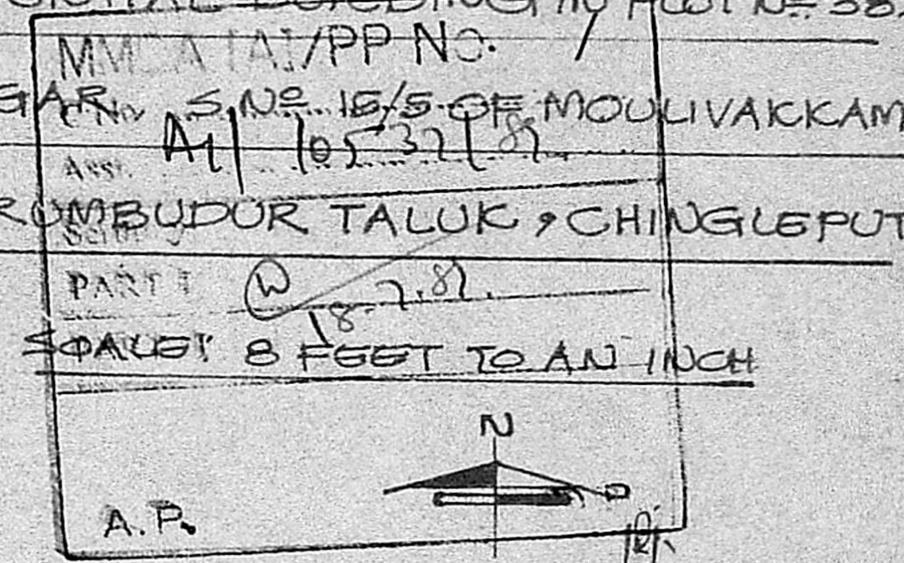 PLOT Nº 38
MMDA /PP No.
GAR, S.Nº 15/5 OF MOULIVAKKAM
A1/ 10532/82
Asst.
ROMBUDUR TALUK, CHINGLEPUT
PART I
18.7.82.
SCALE: 8 FEET TO AN INCH
N
A.P.